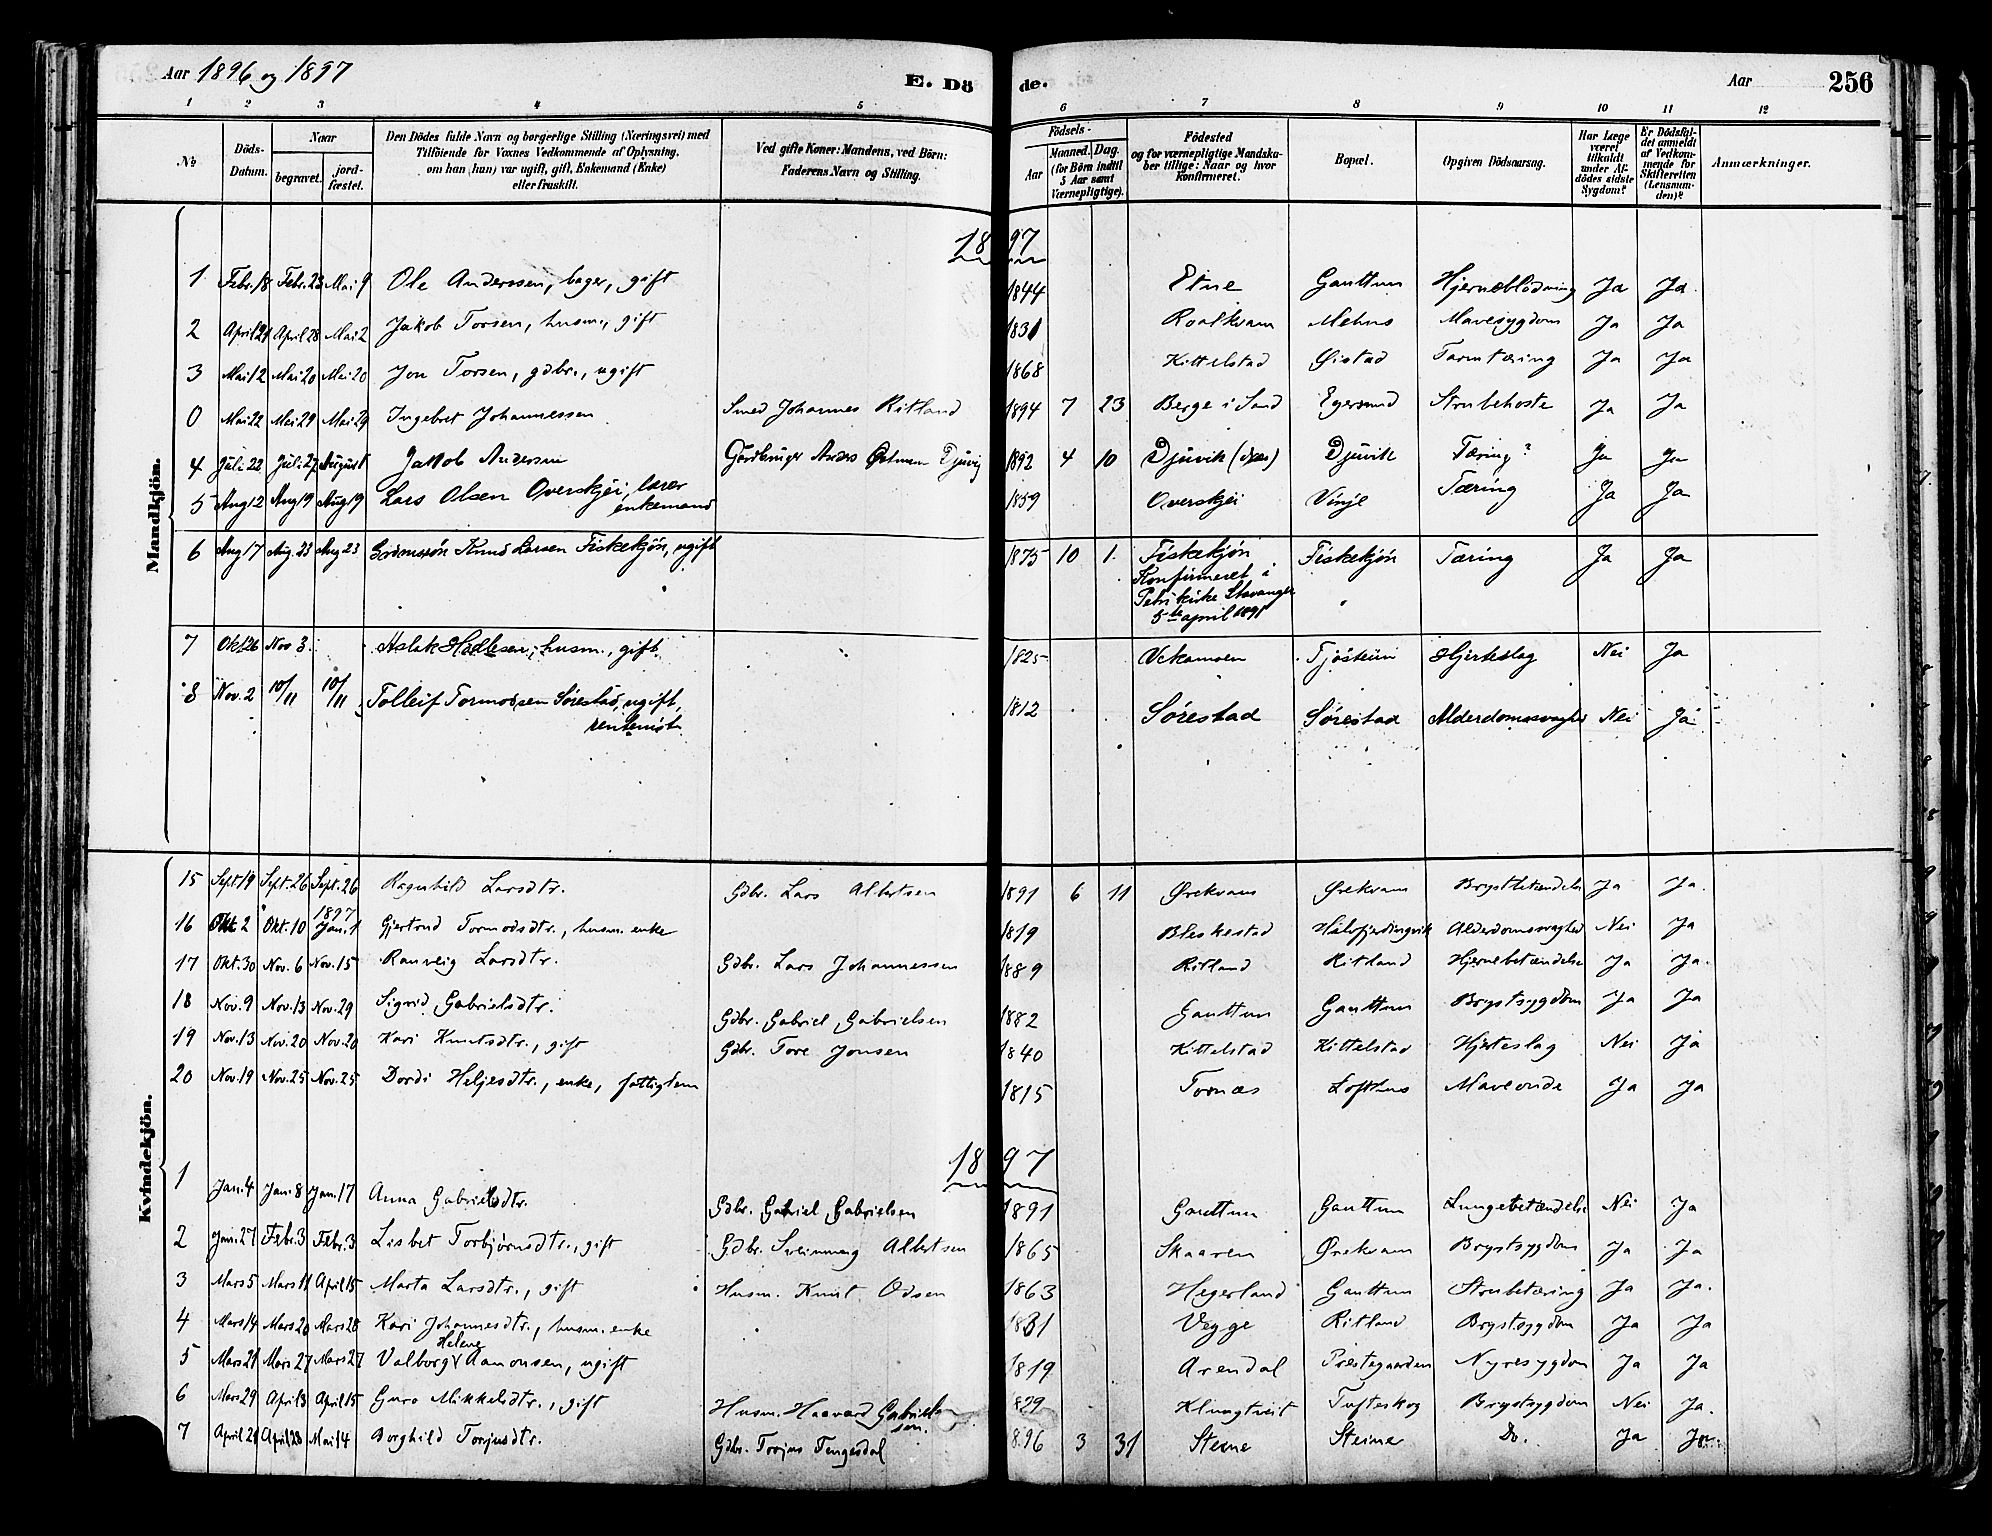 Aar 1896 og 1897 E. Döde. Aar 256
1 2 3 4 5 6 7 8 9 10 11 12
№ Döds-Datum. Naar begravet. jordfæstet. Den Dödes fulde Navn og borgerlige Stilling (Næringsvei) med Tilföiende for Voxnes Vedkommende af Oplysning, om han (hun) var ugift, gift, Enkemand (Enke) eller fraskilt. Ved gifte Koner: Mandens, ved Börn: Faderens Navn og Stilling. Födsels- Aar Maaned. Dag. (for Börn indtil 5 Aar samt Værnepligtige). Födested og for værnepligtige Mandskaber tillige: Naar og hvor Konfirmeret. Bopæl. Opgiven Dödsaarsag. Har Læge været tilkaldt under Afdödes sidste Sygdom? Er Dödsfaldet anmeldt af Vedkommende for Skifteretten (Lensmanden)? Anmærkninger.
Mandkjön.
1897
1 Febr. 18 Febr. 23 Mai 9 Ole Anderssen, bager, gift 1844 Etne Gauttun Hjerneblödning Ja Ja.
2 April 21 April 28 Mai 2 Jakob Torsen, husm., gift 1831 Roalkvam Mehus Mavesygdom Ja Ja
3 Mai 12 Mai 20 Mai 20 Jon Torsen, gdbr., ugift 1868 Kittelstad Øistad Tarmtæring Ja Ja
0 Mai 22 Mai 29 Mai 29 Ingebret Johannessen Smed Johannes Ritland 1894 7 23 Berge i Sand Egersund Strubehoste Ja Ja
4 Juli 22 Juli 27 August Jakob Andersen Gardbruger Anders Østmun Djuvig 1892 4 10 Djuvik Djuvik Tæring? Ja Ja
5 Aug 12 Aug 19 Aug 19 Lars Olsen Overskjei, lærer enkemand 1859 Overskjei Vinje Tæring Ja Ja
6 Aug 17 Aug. 23 Aug 23 Gardmssøn Knud Larsen Fiskekjøn, ugift 1875 10 1. Fiskekjøn Konfirmeret i Petri kirke Stavanger 5te april 1891 Fiskekjøn Tæring Ja Ja
7 Okt 26 Nov 3. Aslak Hallesen, husm., gift. 1825 Vekamoen Tjösteim Hjerteslag Nei Ja
8 Nov. 2 10/11 10/11 Tolleif Tormodsen Sørestad, ugift, rentenist 1812 Sørestad Sørestad Alderdomssvaghed Nei Ja
Kvindekjön.
15 Sept 19 Sept. 26 Sept. 26 Ragnhild Larsdtr. Gdbr. Lars Albertsen 1891 6 11 Ørekvam Ørekvam Brystbetændelse Ja Ja.
16 Okt 2 Okt. 10 1897 Jan. 1 Gjertrud Tormodsdtr., husm. enke 1819 Bleskestad Halvfjerdingvik Alderdomssvaghed Nei Ja
17 Okt. 30 Nov. 6 Nov. 15 Ranveig Larsdtr. Gdbr. Lars Johannessen 1889 Ritland Ritland Hjernebetændelse Ja Ja.
18 Nov. 9 Nov. 13 Nov. 29 Sigrid Gabrielsdtr. Gdbr. Gabriel Gabrielsen 1882 Gauttun Gauttun Brystsygdom Ja Ja
19 Nov. 13 Nov. 20 Nov. 20 Kari Knutsdtr., gift Gdbr. Tore Jonsen 1840 Kittelstad Kittelstad Hjerteslag Nei Ja
20 Nov. 19 Nov. 25 Nov. 25 Dordi Heljesdtr., enke, fattiglem 1815 Tornæs Lofthus Maveonde Ja Ja
1897
1 Jan. 4 Jan. 8 Jan. 17 Anna Gabrielsdtr. Gdbr. Gabriel Gabrielsen 1891 Gauttun Gauttun Lungebetændelse Nei Ja
2 Jan. 27 Febr. 3 Febr. 3 Lisbet Torbjørnsdtr., gift Gdbr. Sveinung Albertsen 1865 Skaaren Ørekvam Brystsygdom Ja Ja
3 Mars 5 Mars 11 April 15 Marta Larsdtr., gift Husm. Knut Odsen 1863 Hegerland Gauttun Strubetæring Ja Ja.
4 Mars 14 Mars 20 Mars 28 Kari Johannesdtr., husm. enke 1831 Vegge Ritland Brystsygdom Ja Ja
5 Mars 21 Mars 27 Mars 27 Valborg Helene Aamonsen, ugift 1819 Arendal Prestegaarden Nyresygdom Ja Ja
6 Mars 29 April 3 April 15 Guro Mikkelsdtr., gift Husm. Haavard Gabrielsen 1829 Klungtveit Tufteskog Brystsygdom Nei Ja.
7 April 21 April 28 Mai 14 Borghild Torjusdtr. Gdbr. Torjus Tengesdal 1896 3 31 Steine Steine Do. Ja Ja